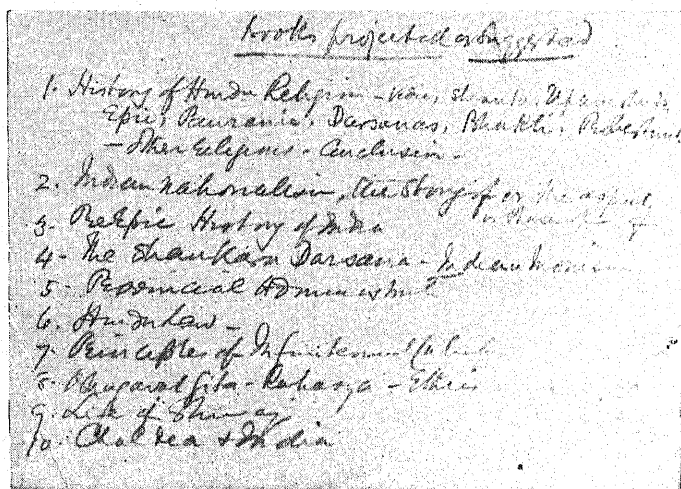 Books projected or Suggested
1. History of Hindu Religion - Upanishads
Epic, Pauranic, Darsanas, Bhakti,
- Other religions - Conclusion -
2. Indian nationalism, the Story of
3. PreEpic History of India
4 - The Shankara Darsana - Indian Monism
5 - Provincial Administ
6. Hindu Law -
7. Principles of Infinitesimal Calcul
8. Bhagavat Gita - Rahasya - Ethics
9. Life of Shivaji
10. Chaldea & India